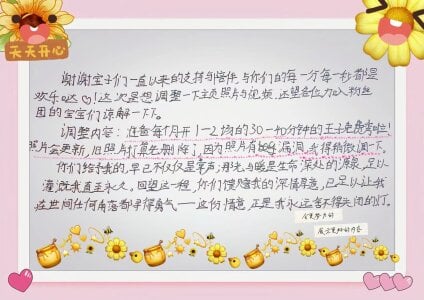 天天开心
谢谢宝子们一直以来的支持与陪伴,与你们的每一分每一秒都是
欢乐哒♡!这次是想调整一下主页照片与视频,还望各位加入粉丝
团的宝宝们谅解一下下。
调整内容:在每个月开1-2场的30-40分钟的王子
照片会更新,旧照片打算先删除了,因为照片有 漏洞,我得稍微调一下。
你们给予我的,早已不仅仅是掌声,那光与暖是生命深处的源泉,足以
灌溉我直至永久。回望这一程,你们馈赠我的深情厚意,已足以让我
在世间任何角落都 勇气——这份情意,正是我永远舍不得关闭的灯。
会更努力的